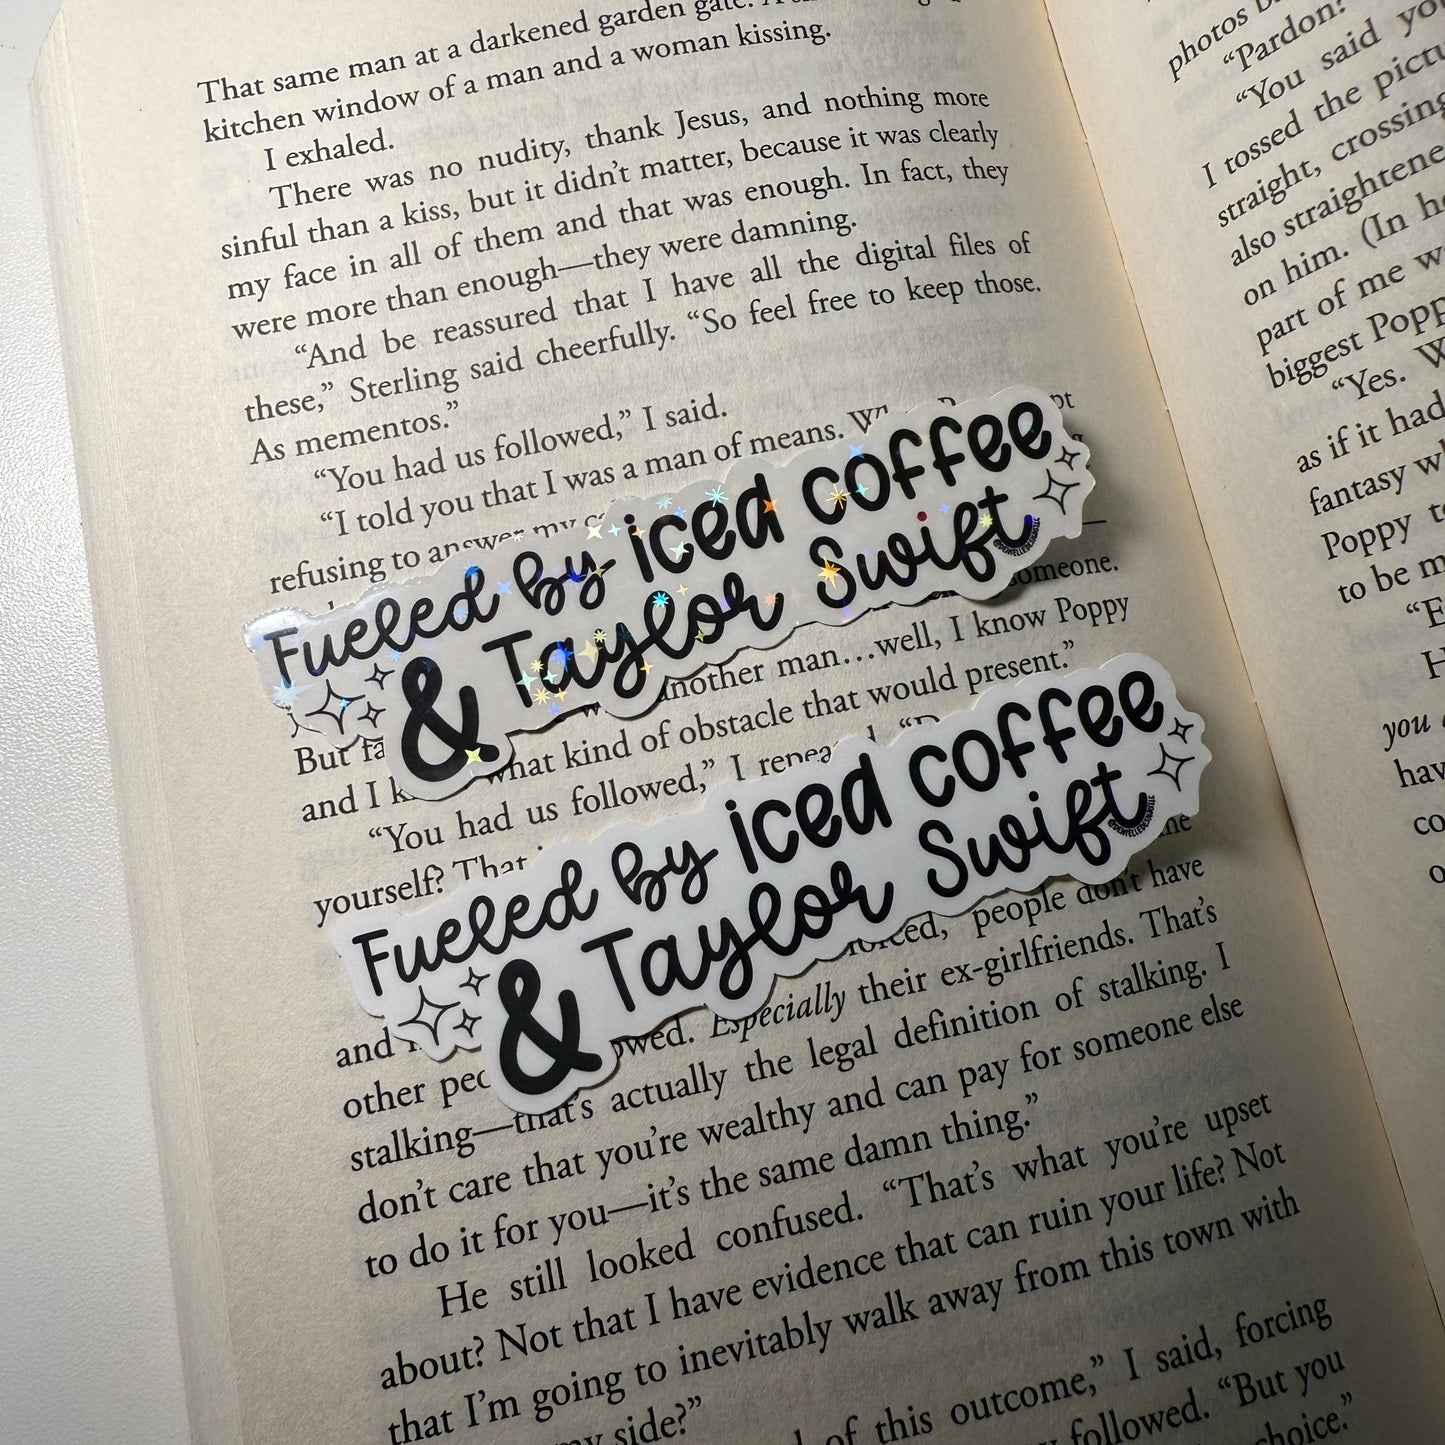 That same man at a darkened garden gate. A
kitchen window of a man and a woman kissing.
I exhaled.
There was no nudity, thank Jesus, and nothing more
sinful than a kiss, but it didn't matter, because it was clearly
my face in all of them and that was enough. In fact, they
were more than enough—they were damning.
“And be reassured that I have all the digital files of
these,” Sterling said cheerfully. “So feel free to keep those.
As mementos.”
“You had us followed,” I said.
“I told you that I was a man of means.
refusing to answer my
Fueled by iced coffee
& Taylor Swift
someone.
another man…well, I know Poppy
what kind of obstacle that would present.”
But
and I
“You had us followed,” I repeated.
yourself? That
Fueled by iced coffee
& Taylor Swift
people don't have
and
Especially their ex-girlfriends. That's
other
stalking—that's actually the legal definition of stalking. I
don't care that you're wealthy and can pay for someone else
to do it for you—it's the same damn thing.”
He still looked confused. “That's what you're upset
about? Not that I have evidence that can ruin your life? Not
that I'm going to inevitably walk away from this town with
my side?”
of this outcome,” I said, forcing
followed. “But you
choice.”
photos
“Pardon?
“You said
I tossed the
straight, crossing
also
on him. (In
part of me
biggest
“Yes.
as if it had
fantasy
Poppy
to be
you